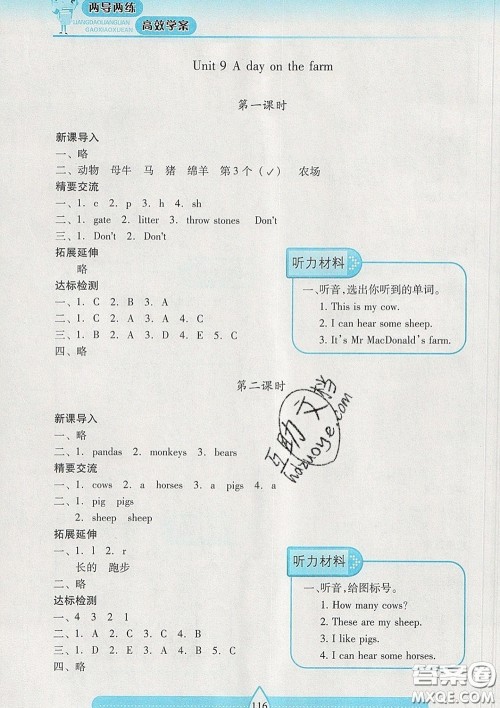 两导两练
LIANGDAOLIANGLIAN
高效学案
GAOXIAOXUEAN
Unit 9 A day on the farm
第一课时
新课导入
一、略
二、动物 母牛 马 猪 绵羊 第3个（✓） 农场
精要交流
一、1. c 2. p 3. h 4. sh
二、1. gate 2. litter 3. throw stones Don't
三、1. Don't 2. Don't
拓展延伸
略
达标检测
一、1. C 2. B 3. A
二、1. A 2. B 3. C
三、1. B 2. A 3. D 4. E 5. C
四、略
听力材料
一、听音，选出你听到的单词。
1. This is my cow.
2. I can hear some sheep.
3. It's Mr MacDonald's farm.
第二课时
新课导入
一、略
二、1. pandas 2. monkeys 3. bears
精要交流
一、1. cows 2. a horses 3. a pigs 4. a
二、1. pig pigs
2. sheep sheep
拓展延伸
一、1. l 2. r
长的 跑步
二、略
达标检测
一、4 3 2 1
二、1. A 2. C 3. B 4. C
三、1. D 2. A 3. E 4. B 5. C
四、略
听力材料
一、听音，给图标号。
1. How many cows?
2. These are my sheep.
3. I like pigs.
4. I can hear some horses.
互助文档
huzuoye.com
116
答案圈
MXQE.COM